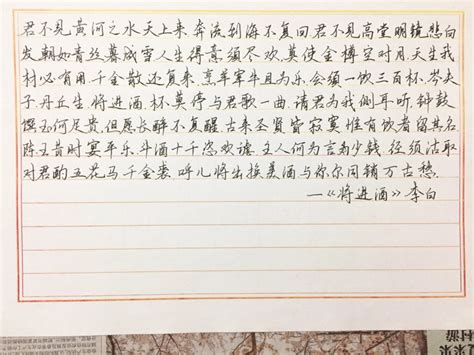 君不见黄河之水天上来奔流到海不复回君不见高堂明镜悲白
发朝如青丝暮成雪人生得意须尽欢莫使金樽空对月天生我
材必有用千金散还复来烹羊宰牛且为乐会须一饮三百杯岑夫
子丹丘生将进酒杯莫停与君歌一曲请君为我侧耳听钟鼓
馔玉何足贵但愿长醉不复醒古来圣贤皆寂寞惟有饮者留其名
陈王昔时宴平乐斗酒十千恣欢谑主人何为言少钱径须沽取
对君酌五花马千金裘呼儿将出换美酒与你尔同销万古愁
—《将进酒》李白